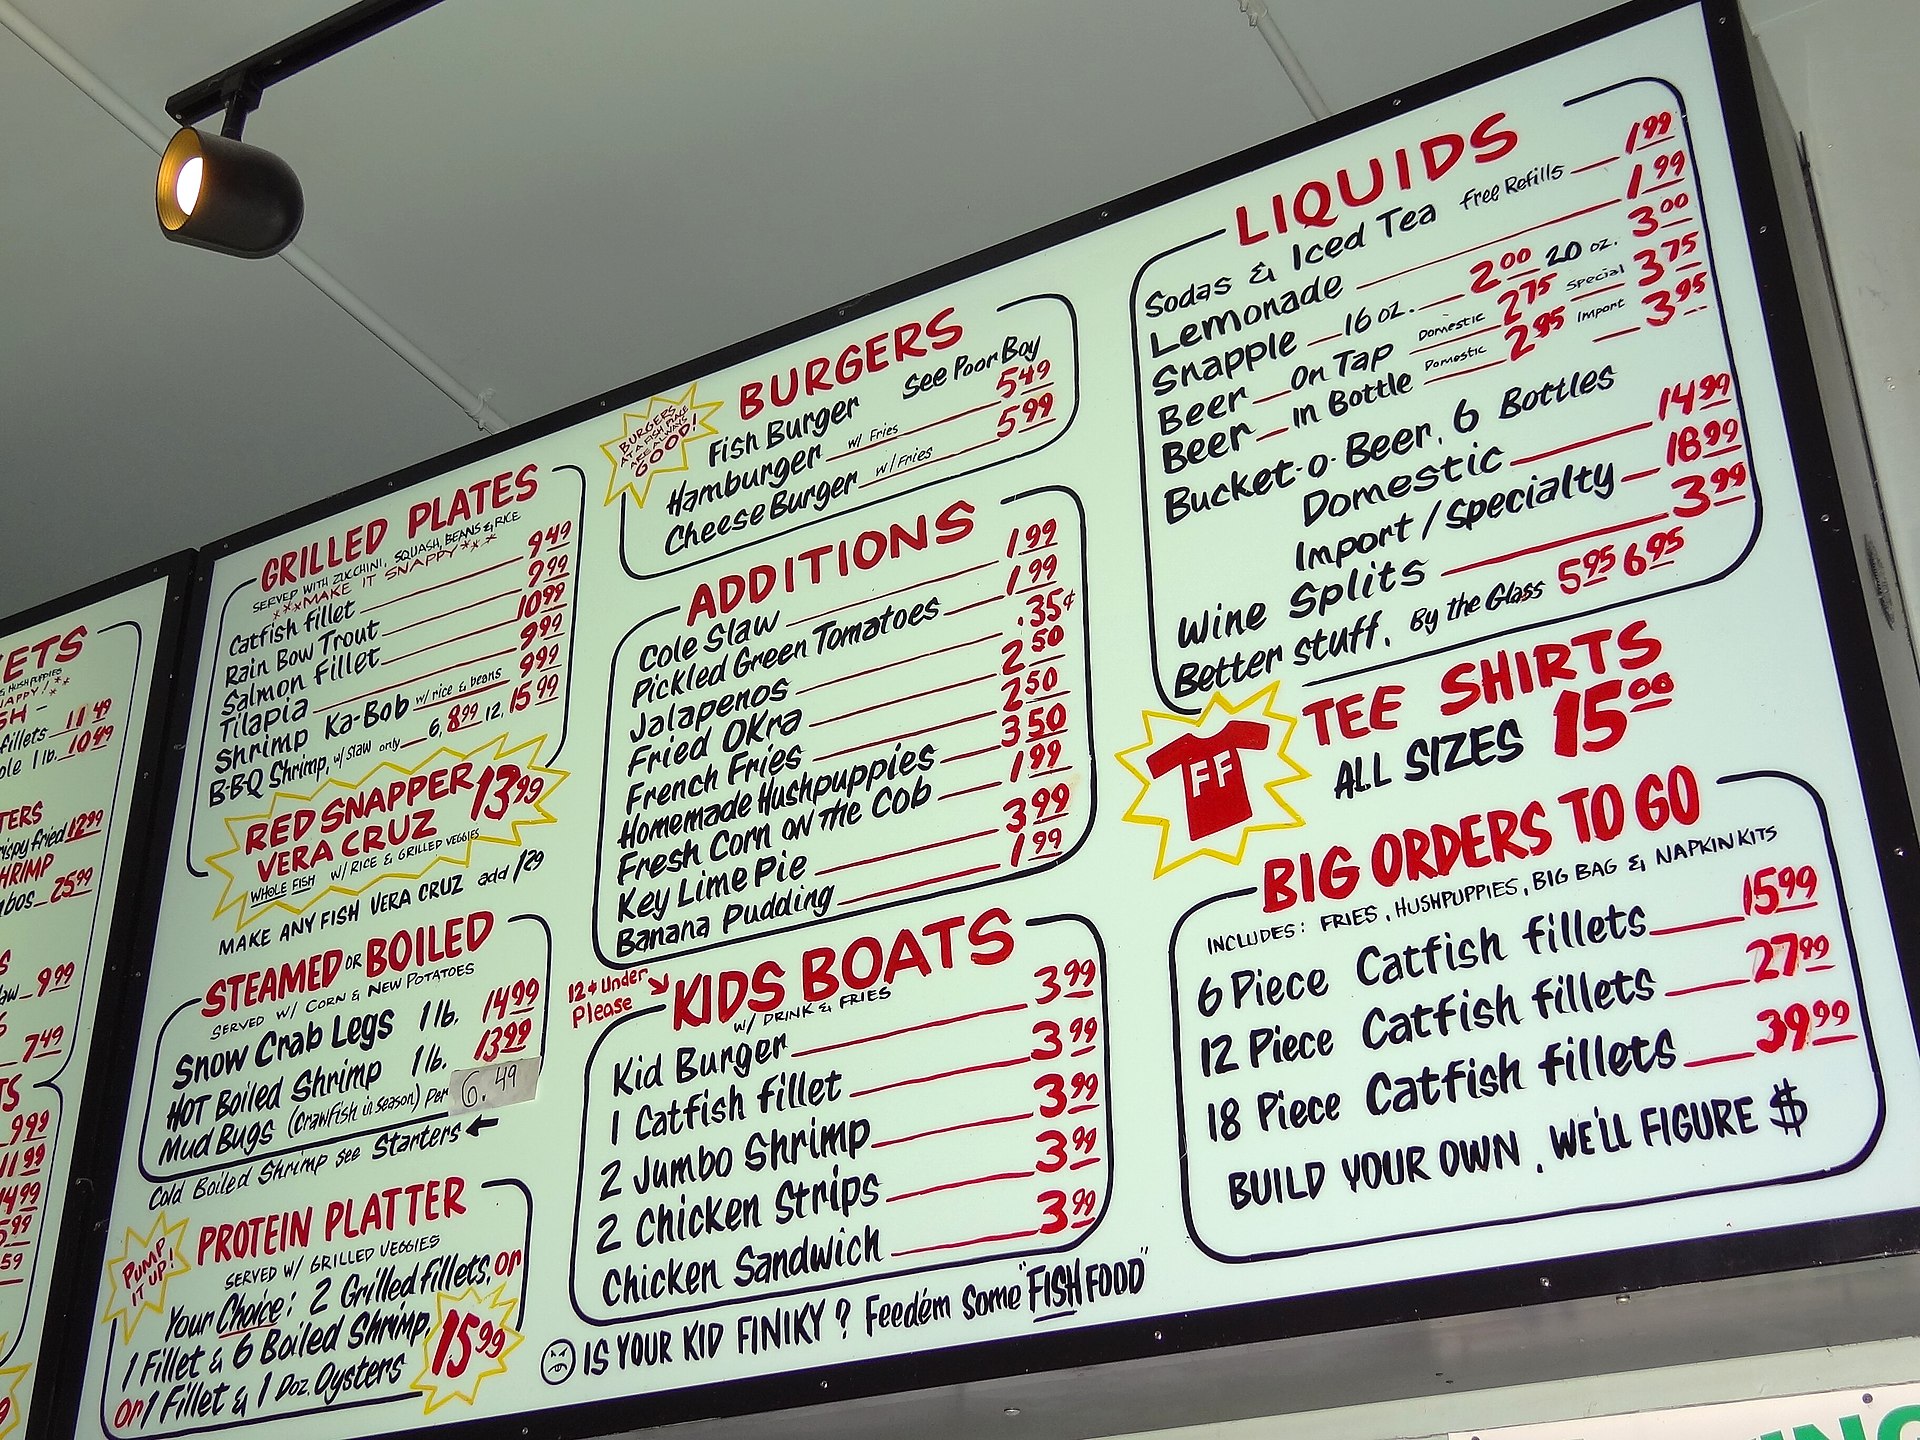 ETS
SH-
fillets 11 49
ole 1 lb. 10 49
TERS
crispy fried 12 99
HRIMP
mbos 25 99
law 9 99
7 49
TS
9 99
11 99
14 99
5 99
59
GRILLED PLATES
SERVED WITH ZUCCHINI, SQUASH, BEANS & RICE
***MAKE IT SNAPPY***
Catfish fillet 9 49
Rain Bow Trout 9 99
Salmon fillet 10 99
Tilapia 9 99
Shrimp Ka-Bob w/ rice & beans 9 99
B-B-Q Shrimp, w/ slaw only 6, 8 99 12, 15 99
RED SNAPPER 13 99
VERA CRUZ
WHOLE FISH W/ RICE & GRILLED VEGGIES
MAKE ANY FISH VERA CRUZ add 1 29
STEAMED OR BOILED
SERVED W/ CORN & NEW POTATOES
Snow Crab Legs 1 lb. 14 99
HOT Boiled Shrimp 1 lb. 13 99
Mud Bugs (Crawfish in season) Per 6.49
Cold Boiled Shrimp see Starters ←
PUMP IT UP!
PROTEIN PLATTER
SERVED W/ GRILLED VEGGIES
Your Choice: 2 Grilled fillets, or
1 Fillet & 6 Boiled Shrimp,
or 1 Fillet & 1 Doz. Oysters 15 99
BURGERS
AT A FISH PLACE
ARE ALWAYS
GOOD!
BURGERS
Fish Burger See Poor Boy
Hamburger w/ Fries 5 49
Cheese Burger w/ Fries 5 99
ADDITIONS
Cole Slaw 1 99
Pickled Green Tomatoes 1 99
Jalapenos .35¢
Fried OKra 2 50
French Fries 2 50
Homemade Hushpuppies 3 50
Fresh Corn on the Cob 1 99
Key Lime Pie 3 99
Banana Pudding 1 99
12 & Under
Please
KIDS BOATS
W/ DRINK & FRIES
Kid Burger 3 99
1 Catfish fillet 3 99
2 Jumbo Shrimp 3 99
2 Chicken Strips 3 99
Chicken Sandwich 3 99
IS YOUR KID FINIKY? Feedem Some "FISH FOOD"
LIQUIDS
Sodas & Iced Tea free Refills 1 99
Lemonade 1 99
Snapple 16 oz. 2 00 20 oz. 3 00
Beer On Tap Domestic 2 75 Special 3 75
Beer in Bottle Domestic 2 95 Import 3 95
Bucket-o-Beer, 6 Bottles
Domestic 14 99
Import/Specialty 18 99
Wine Splits 3 99
Better stuff, By the Glass 5 95 6 95
FF
TEE SHIRTS
ALL SIZES 15 00
BIG ORDERS TO GO
INCLUDES: FRIES, HUSHPUPPIES, BIG BAG & NAPKIN KITS
6 Piece Catfish fillets 15 99
12 Piece Catfish fillets 27 99
18 Piece Catfish fillets 39 99
BUILD YOUR OWN, WE'LL FIGURE $